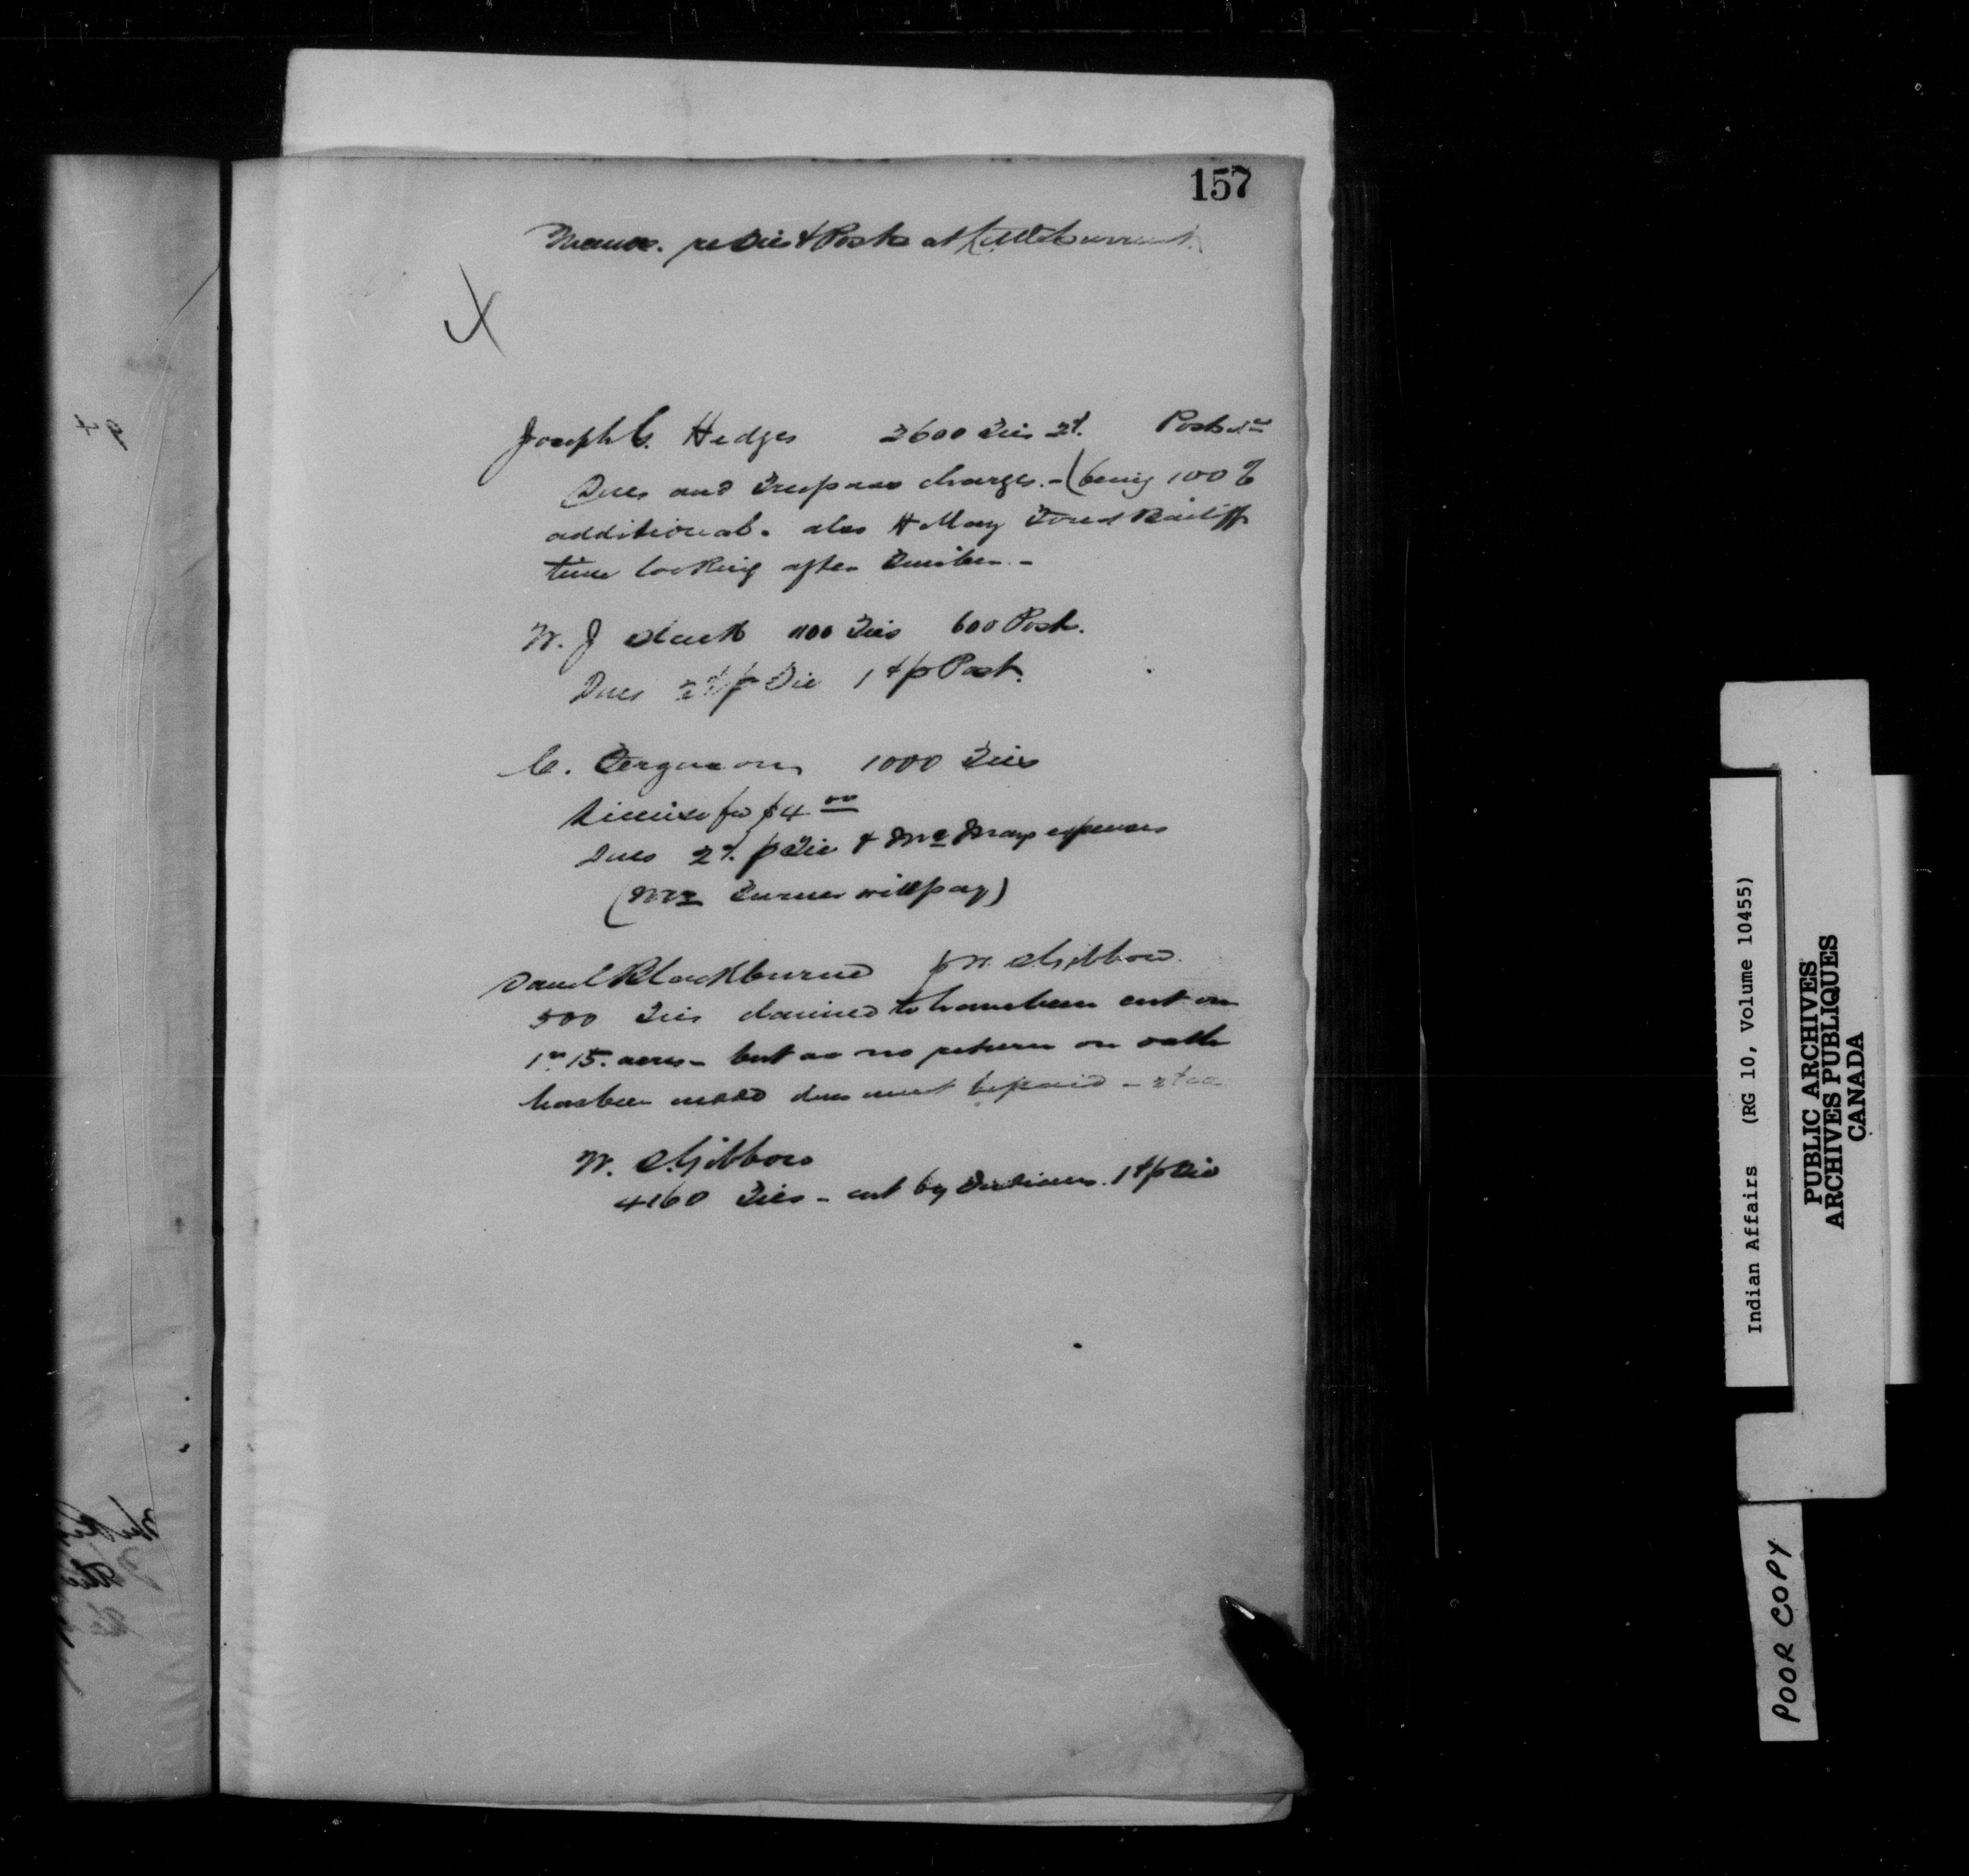 157
Memo. re Ties & Posts at Little Current
Joseph C. Hedges 2600 Ties 2¢. Posts 1¢
Dues and Trespass charges. - (being 100%
additional. also H May Forest Bailiff
time looking after Timber. -
W. J 1100 Ties 600 Post.
Dues 2¢ p Tie 1¢ p Post.
C. Ferguson 1000 Ties
License fee $4 00
Dues 2¢. p Tie & Mr Mays expenses
(Mr Turner will pay)
Danl Blackburne pr W. McGibbon
500 Ties claimed to have been cut on
1st 15. acres - but as no return on oath
has been made dues must be paid - 2¢
W. McGibbon
4160 Ties - cut by Indians. 1¢ p Tie
Indian Affairs (RG 10, Volume 10455)
PUBLIC ARCHIVES
ARCHIVES PUBLIQUES
CANADA
POOR COPY